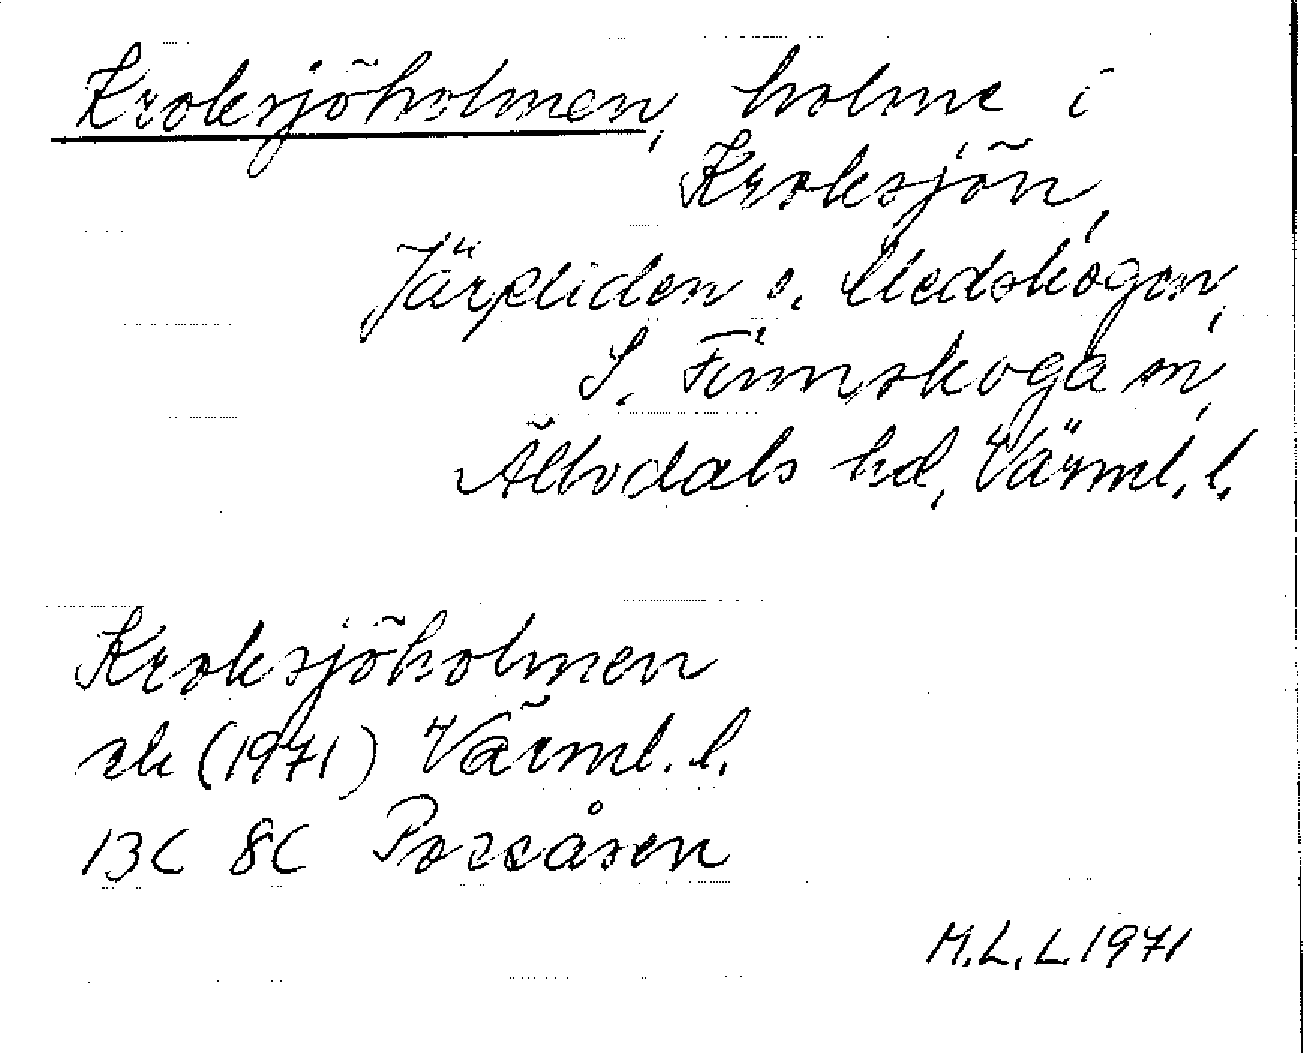 Kroksjöholmen, holme i
Kroksjön,
Järpliden o. Medskogen,
S. Finnskoga sn,
Älvdals hd, Värml. l.
Kroksjöholmen
ek (1971) Värml. l.
13C 8C Possåsen
M.L.L. 1971